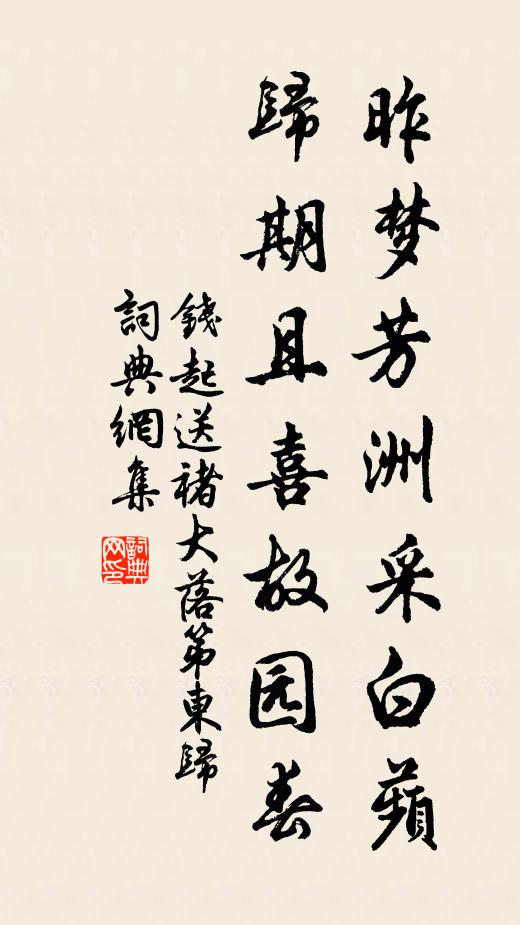 昨梦芳洲采白蘋
歸期且喜故园春
錢起送褚大落第東歸
詞典網集
詞典网印